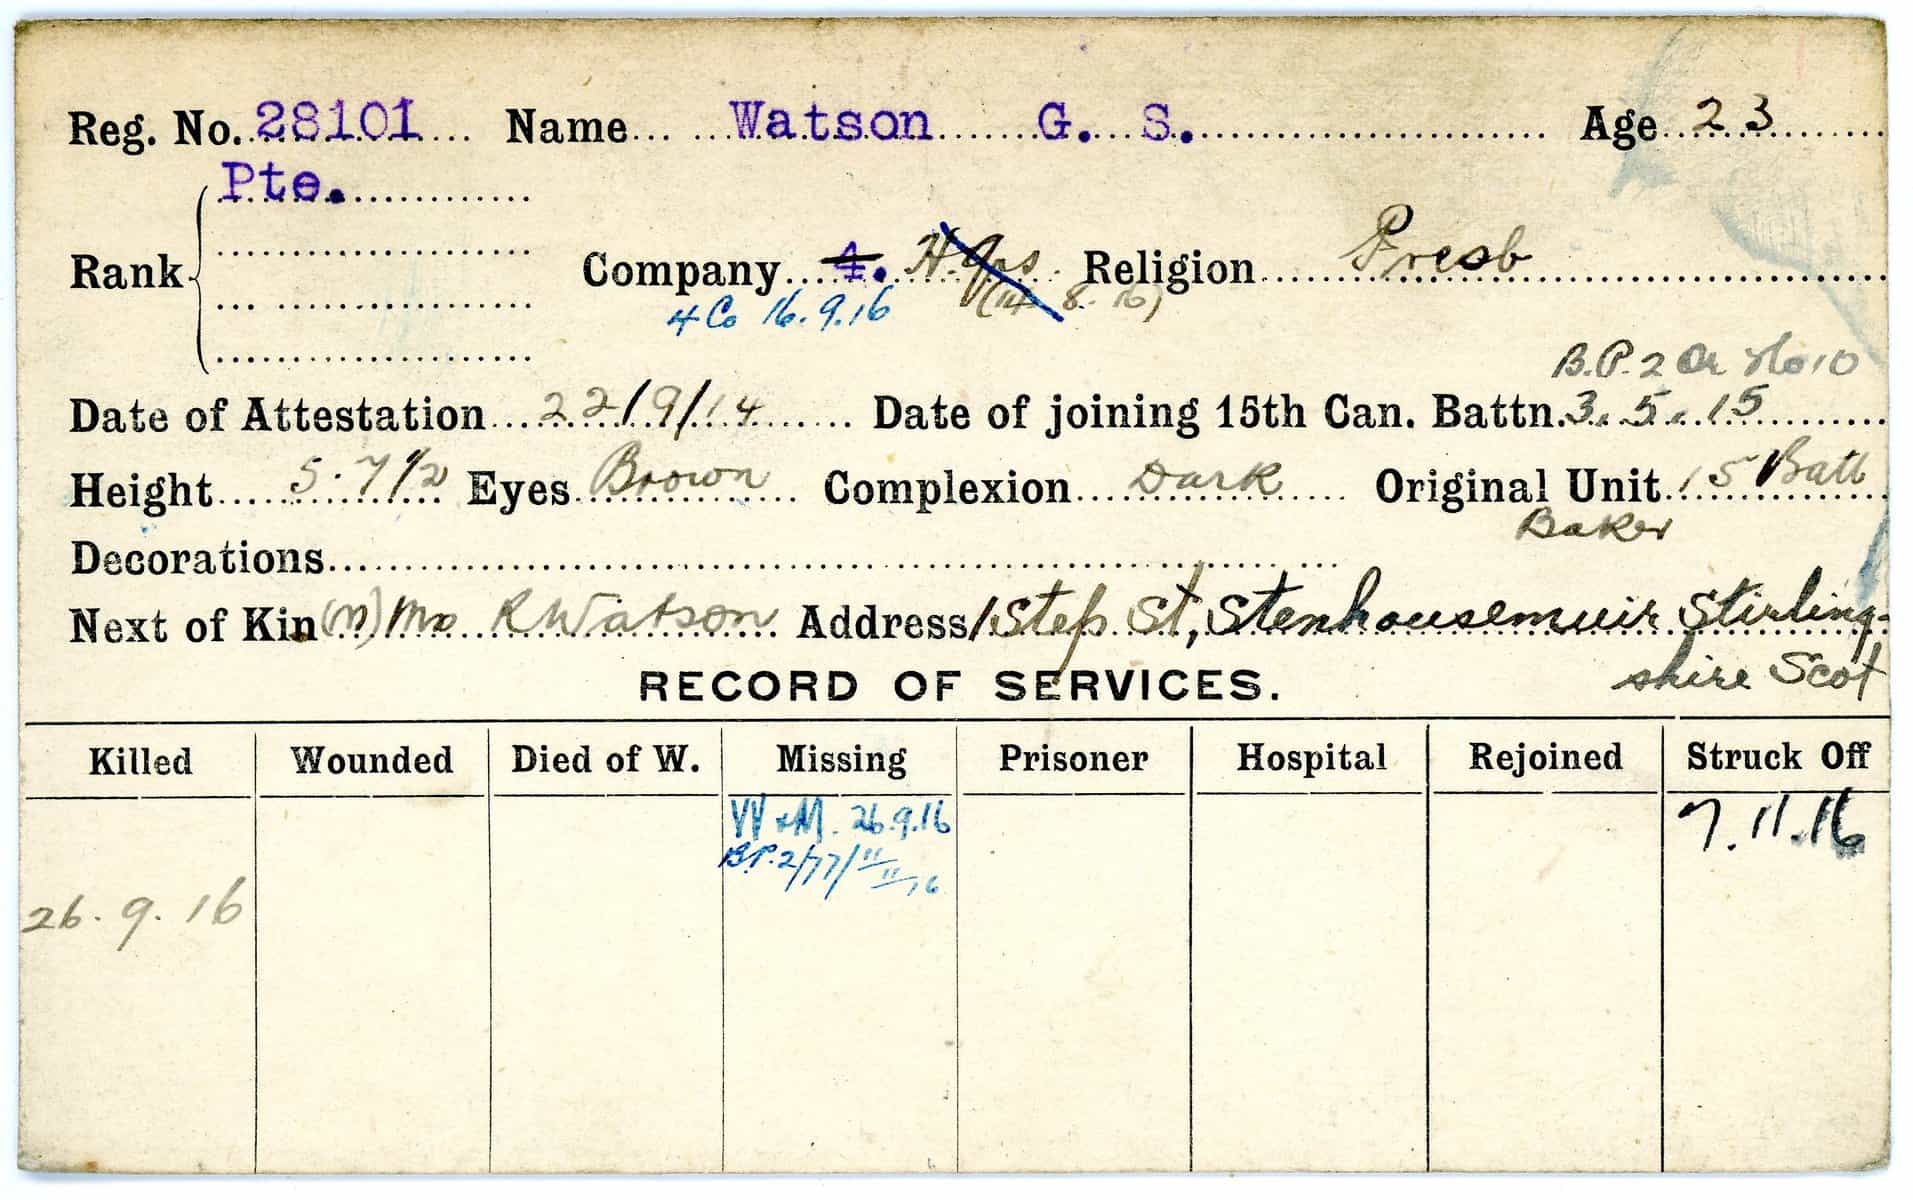 Reg. No. 28101 Name Watson G. S. Age 23
Pte.
Rank Company 4. H.Qrs. Religion Presb
4 Co 16.9.16 8.16)
B.P. 2 Or No 10
Date of Attestation 22/9/14 Date of joining 15th Can. Battn. 3.5.15
Height 5.7 1/2 Eyes Brown Complexion Dark Original Unit 15 Batt
Baker
Decorations
Next of Kin (M) Mrs R Watson Address 1 Steps St, Stenhousemuir Stirling-
shire Scot
RECORD OF SERVICES.
Killed Wounded Died of W. Missing Prisoner Hospital Rejoined Struck Off
W + M. 26.9.16 7.11.16
B.P. 2/77/11/11/16
26.9.16